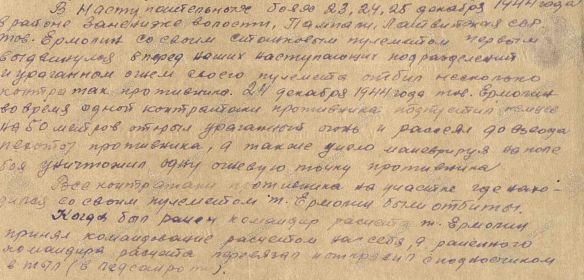 В Наступательных боях 23, 24, 25 декабря 1944 года
в районе волости, Пампали, Латвийская ССР
тов. Ермолин со своим станковым пулеметом первым
выдвинулся вперед наших наступающих подразделений
и ураганным огнем своего пулемета отбил несколько
контратак противника. 24 декабря 1944 года тов. Ермолин
во время одной контратаки противника подпустил немцев
на 50 метров открыл ураганный огонь и рассеял до взвода
пехоты противника, а также умело маневрируя на поле
боя уничтожил одну огневую точку противника
Все контратаки противника на участке где нахо-
дился со своим пулеметом т. Ермолин были отбиты.
Когда был ранен командир расчета т. Ермолин
принял командование расчетом на себя, а раненного
командира расчета перевязал и отправил с подносчиком
в (в ).